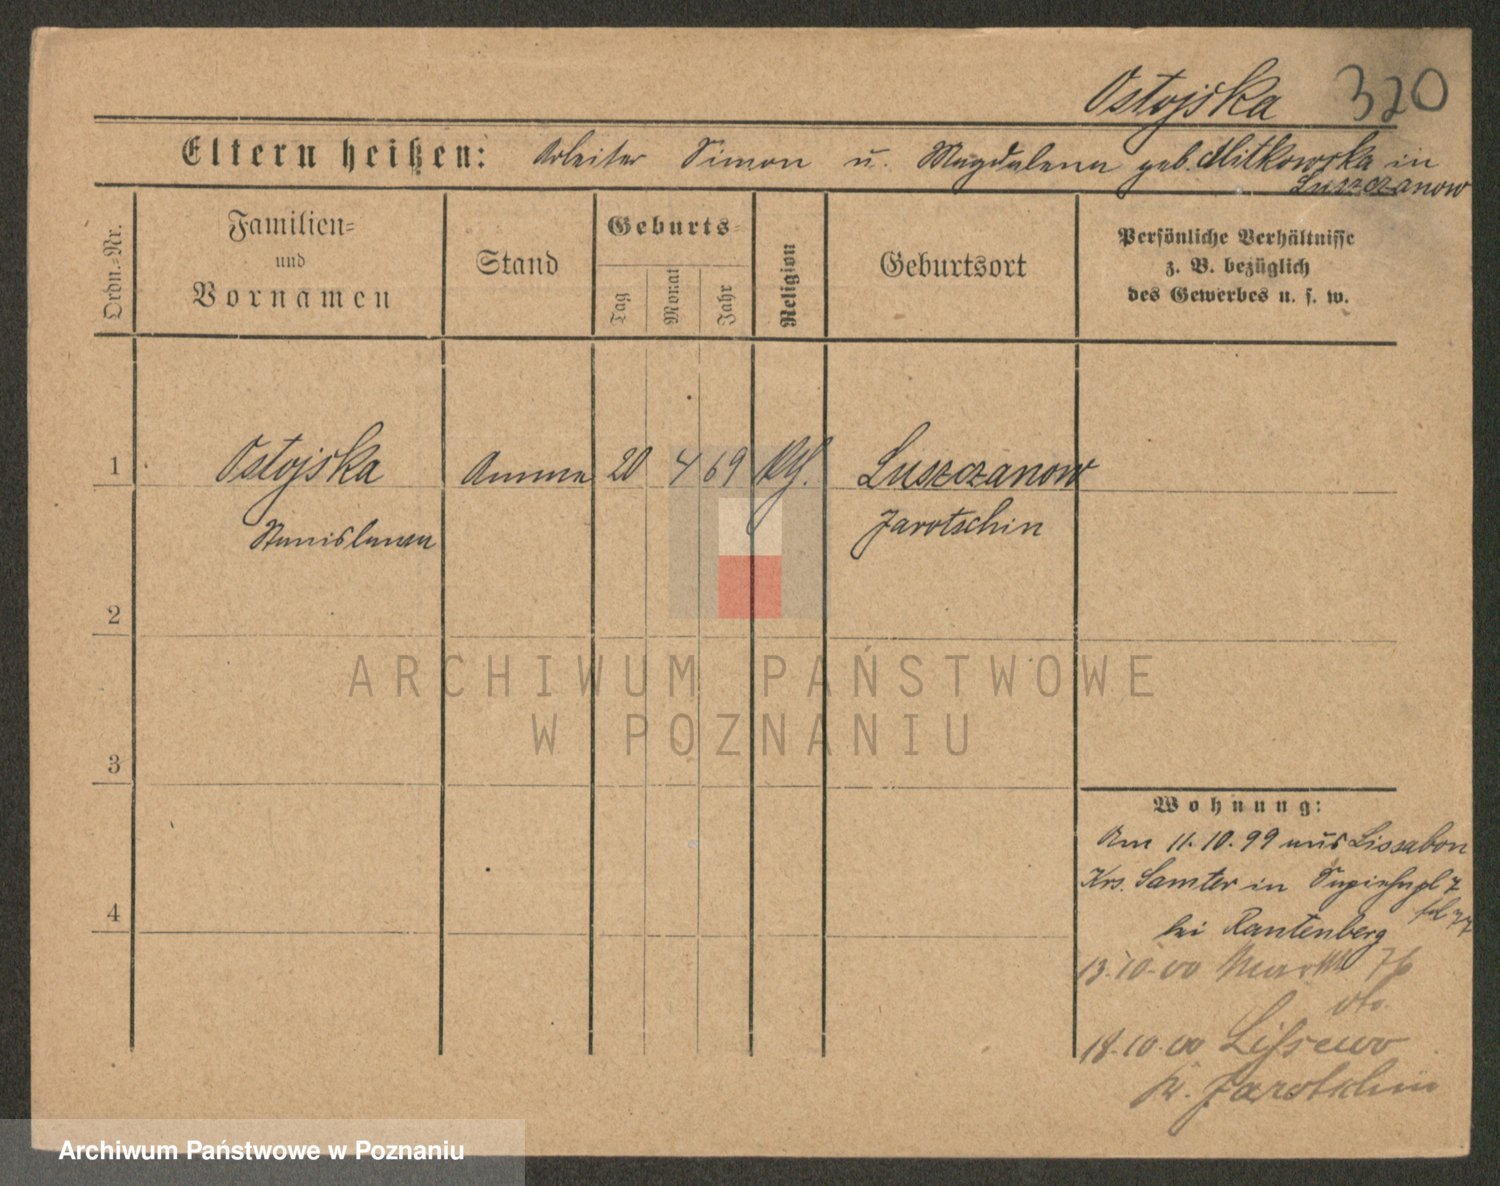 Ostojska 320
Eltern heißen: Arbeiter Simon u. Magdalena geb. Mitkowska in
Luszczanow
Ordn.=Nr.
Familien=
und
Vornamen
Stand
Geburts=
Tag
Monat
Jahr
Religion
Geburtsort
Persönliche Verhältnisse
z. B. bezüglich
des Gewerbes u. s. w.
1 Ostojska Amme 20 4 69 Luszczanow
Stanislawa Jarotschin
2
3
4
ARCHIWUM PAŃSTWOWE
W POZNANIU
Wohnung:
Am 11.10.99 aus Lissabon
Krs. Samter in 7
bei Rantenberg
13.10.00 Markt 76
18.10.00 Lissewo
Kr. Jarotschin
Archiwum Państwowe w Poznaniu